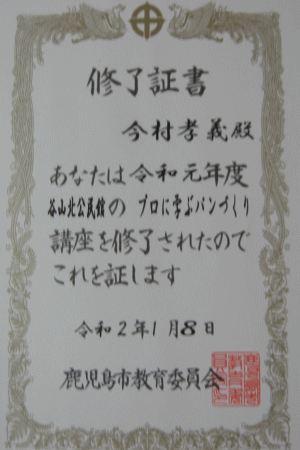 修了証書
今村孝義殿
あなたは令和元年度
谷山北公民館の プロに学ぶパンづくり
講座を修了されたので
これを証します
令和2年1月8日
鹿児島市教育委員会